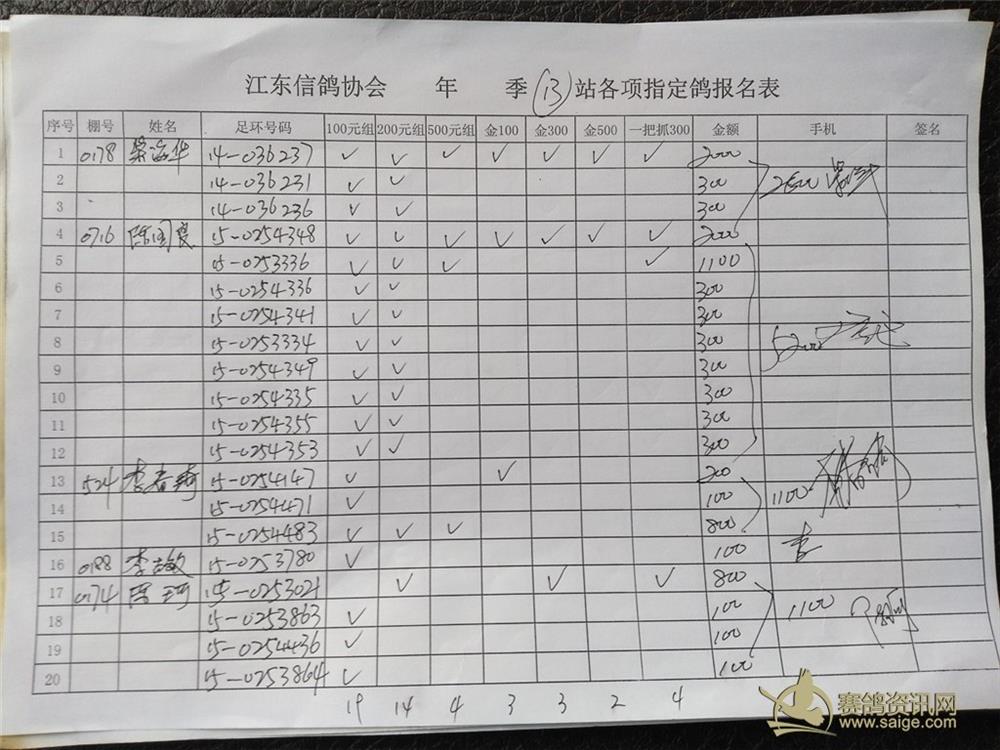 江东信鸽协会 年 季 13 站各项指定鸽报名表
序号 棚号 姓名 足环号码 100元组 200元组 500元组 金100 金300 金500 一把抓300 金额 手机 签名
1 0178 14-036237 ✓ ✓ ✓ ✓ ✓ ✓ ✓ 2000
2 14-036231 ✓ ✓ 300 2600
3 14-036236 ✓ ✓ 300
4 0716 陈国良 15-0254348 ✓ ✓ ✓ ✓ ✓ ✓ ✓ 2000
5 15-0253336 ✓ ✓ ✓ ✓ 1100
6 15-0254336 ✓ ✓ 300
7 15-0254341 ✓ ✓ 300
8 15-0253334 ✓ ✓ 300 5200
9 15-0254349 ✓ ✓ 300
10 15-0254335 ✓ ✓ 300
11 15-0254355 ✓ ✓ 300
12 15-0254353 ✓ ✓ 300
13 524 李春 15-0254147 ✓ ✓ 200
14 15-0254471 ✓ 100 1100
15 15-0254483 ✓ ✓ ✓ 800
16 0188 李敏 15-0253780 ✓ 100 李
17 0174 15-0253021 ✓ ✓ ✓ 800
18 15-0253863 ✓ 100 1100
19 15-0254436 ✓ 100
20 15-0253864 ✓ 100
19 14 4 3 3 2 4
赛鸽资讯网
www.saige.com